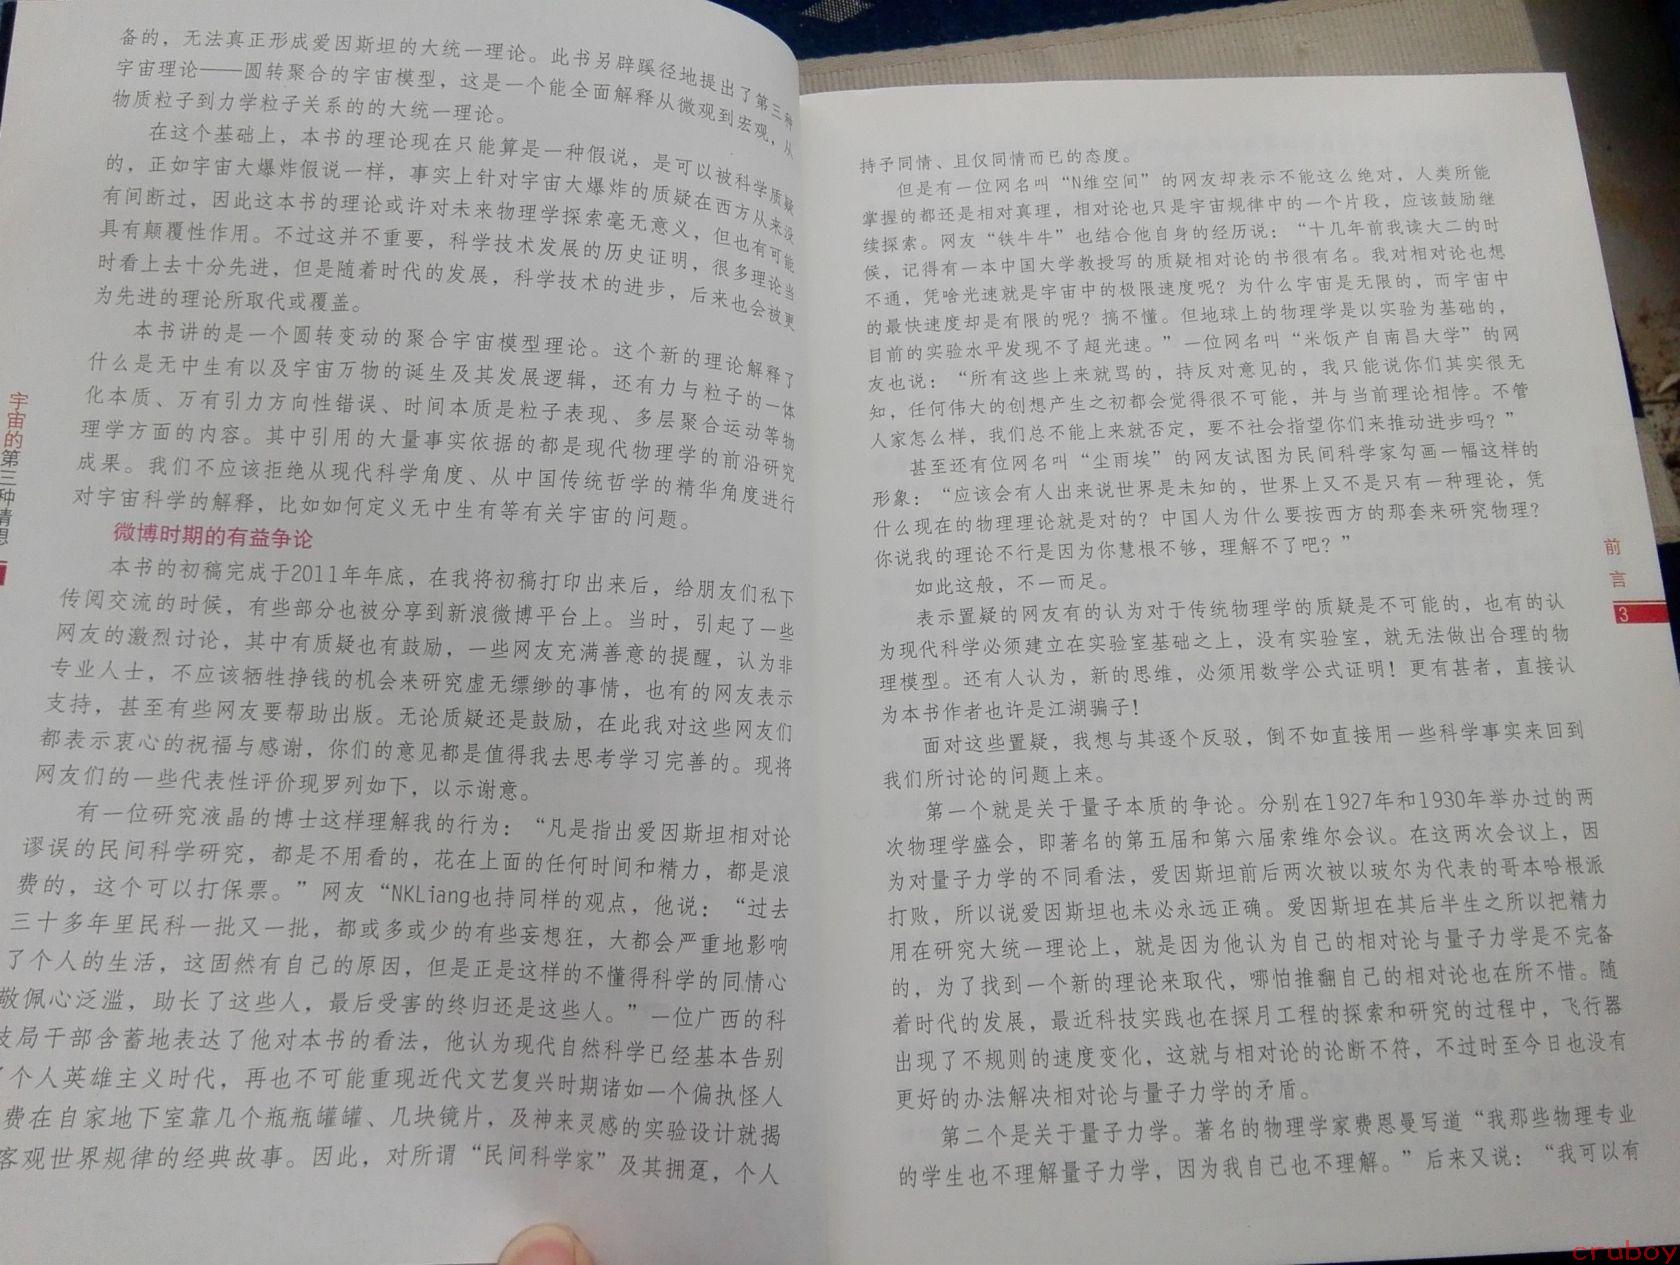 备的，无法真正形成爱因斯坦的大统一理论。此书另辟蹊径地提出了第三种
宇宙理论——圆转聚合的宇宙模型，这是一个能全面解释从微观到宏观，从
物质粒子到力学粒子关系的的大统一理论。
在这个基础上，本书的理论现在只能算是一种假说，是可以被科学质疑
的，正如宇宙大爆炸假说一样，事实上针对宇宙大爆炸的质疑在西方从来没
有间断过，因此这本书的理论或许对未来物理学探索毫无意义，但也有可能
具有颠覆性作用。不过这并不重要，科学技术发展的历史证明，很多理论当
时看上去十分先进，但是随着时代的发展，科学技术的进步，后来也会被更
为先进的理论所取代或覆盖。
本书讲的是一个圆转变动的聚合宇宙模型理论。这个新的理论解释了
什么是无中生有以及宇宙万物的诞生及其发展逻辑，还有力与粒子的一体
化本质、万有引力方向性错误、时间本质是粒子表现、多层聚合运动等物
理学方面的内容。其中引用的大量事实依据的都是现代物理学的前沿研究
成果。我们不应该拒绝从现代科学角度、从中国传统哲学的精华角度进行
对宇宙科学的解释，比如如何定义无中生有等有关宇宙的问题。
微博时期的有益争论
本书的初稿完成于2011年年底，在我将初稿打印出来后，给朋友们私下
传阅交流的时候，有些部分也被分享到新浪微博平台上。当时，引起了一些
网友的激烈讨论，其中有质疑也有鼓励，一些网友充满善意的提醒，认为非
专业人士，不应该牺牲挣钱的机会来研究虚无缥缈的事情，也有的网友表示
支持，甚至有些网友要帮助出版。无论质疑还是鼓励，在此我对这些网友们
都表示衷心的祝福与感谢，你们的意见都是值得我去思考学习完善的。现将
网友们的一些代表性评价现罗列如下，以示谢意。
有一位研究液晶的博士这样理解我的行为：“凡是指出爱因斯坦相对论
谬误的民间科学研究，都是不用看的，花在上面的任何时间和精力，都是浪
费的，这个可以打保票。”网友“NKLiang也持同样的观点，他说：“过去
三十多年里民科一批又一批，都或多或少的有些妄想狂，大都会严重地影响
了个人的生活，这固然有自己的原因，但是正是这样的不懂得科学的同情心
敬佩心泛滥，助长了这些人，最后受害的终归还是这些人。”一位广西的科
技局干部含蓄地表达了他对本书的看法，他认为现代自然科学已经基本告别
了个人英雄主义时代，再也不可能重现近代文艺复兴时期诸如一个偏执怪人
费在自家地下室靠几个瓶瓶罐罐、几块镜片，及神来灵感的实验设计就揭
客观世界规律的经典故事。因此，对所谓“民间科学家”及其拥趸，个人
宇宙的第三种猜想
持予同情、且仅同情而已的态度。
但是有一位网名叫“N维空间”的网友却表示不能这么绝对，人类所能
掌握的都还是相对真理，相对论也只是宇宙规律中的一个片段，应该鼓励继
续探索。网友“铁牛牛”也结合他自身的经历说：“十几年前我读大二的时
候，记得有一本中国大学教授写的质疑相对论的书很有名。我对相对论也想
不通，凭啥光速就是宇宙中的极限速度呢？为什么宇宙是无限的，而宇宙中
的最快速度却是有限的呢？搞不懂。但地球上的物理学是以实验为基础的，
目前的实验水平发现不了超光速。”一位网名叫“米饭产自南昌大学”的网
友也说：“所有这些上来就骂的，持反对意见的，我只能说你们其实很无
知，任何伟大的创想产生之初都会觉得很不可能，并与当前理论相悖。不管
人家怎么样，我们总不能上来就否定，要不社会指望你们来推动进步吗？”
甚至还有位网名叫“尘雨埃”的网友试图为民间科学家勾画一幅这样的
形象：“应该会有人出来说世界是未知的，世界上又不是只有一种理论，凭
什么现在的物理理论就是对的？中国人为什么要按西方的那套来研究物理？
你说我的理论不行是因为你慧根不够，理解不了吧？”
如此这般，不一而足。
表示置疑的网友有的认为对于传统物理学的质疑是不可能的，也有的认
为现代科学必须建立在实验室基础之上，没有实验室，就无法做出合理的物
理模型。还有人认为，新的思维，必须用数学公式证明！更有甚者，直接认
为本书作者也许是江湖骗子！
面对这些置疑，我想与其逐个反驳，倒不如直接用一些科学事实来回到
我们所讨论的问题上来。
第一个就是关于量子本质的争论。分别在1927年和1930年举办过的两
次物理学盛会，即著名的第五届和第六届索维尔会议。在这两次会议上，因
为对量子力学的不同看法，爱因斯坦前后两次被以玻尔为代表的哥本哈根派
打败，所以说爱因斯坦也未必永远正确。爱因斯坦在其后半生之所以把精力
用在研究大统一理论上，就是因为他认为自己的相对论与量子力学是不完备
的，为了找到一个新的理论来取代，哪怕推翻自己的相对论也在所不惜。随
着时代的发展，最近科技实践也在探月工程的探索和研究的过程中，飞行器
出现了不规则的速度变化，这就与相对论的论断不符，不过时至今日也没有
更好的办法解决相对论与量子力学的矛盾。
第二个是关于量子力学。著名的物理学家费恩曼写道“我那些物理专业
的学生也不理解量子力学，因为我自己也不理解。”后来又说：“我可以有
前言
3
cruboy